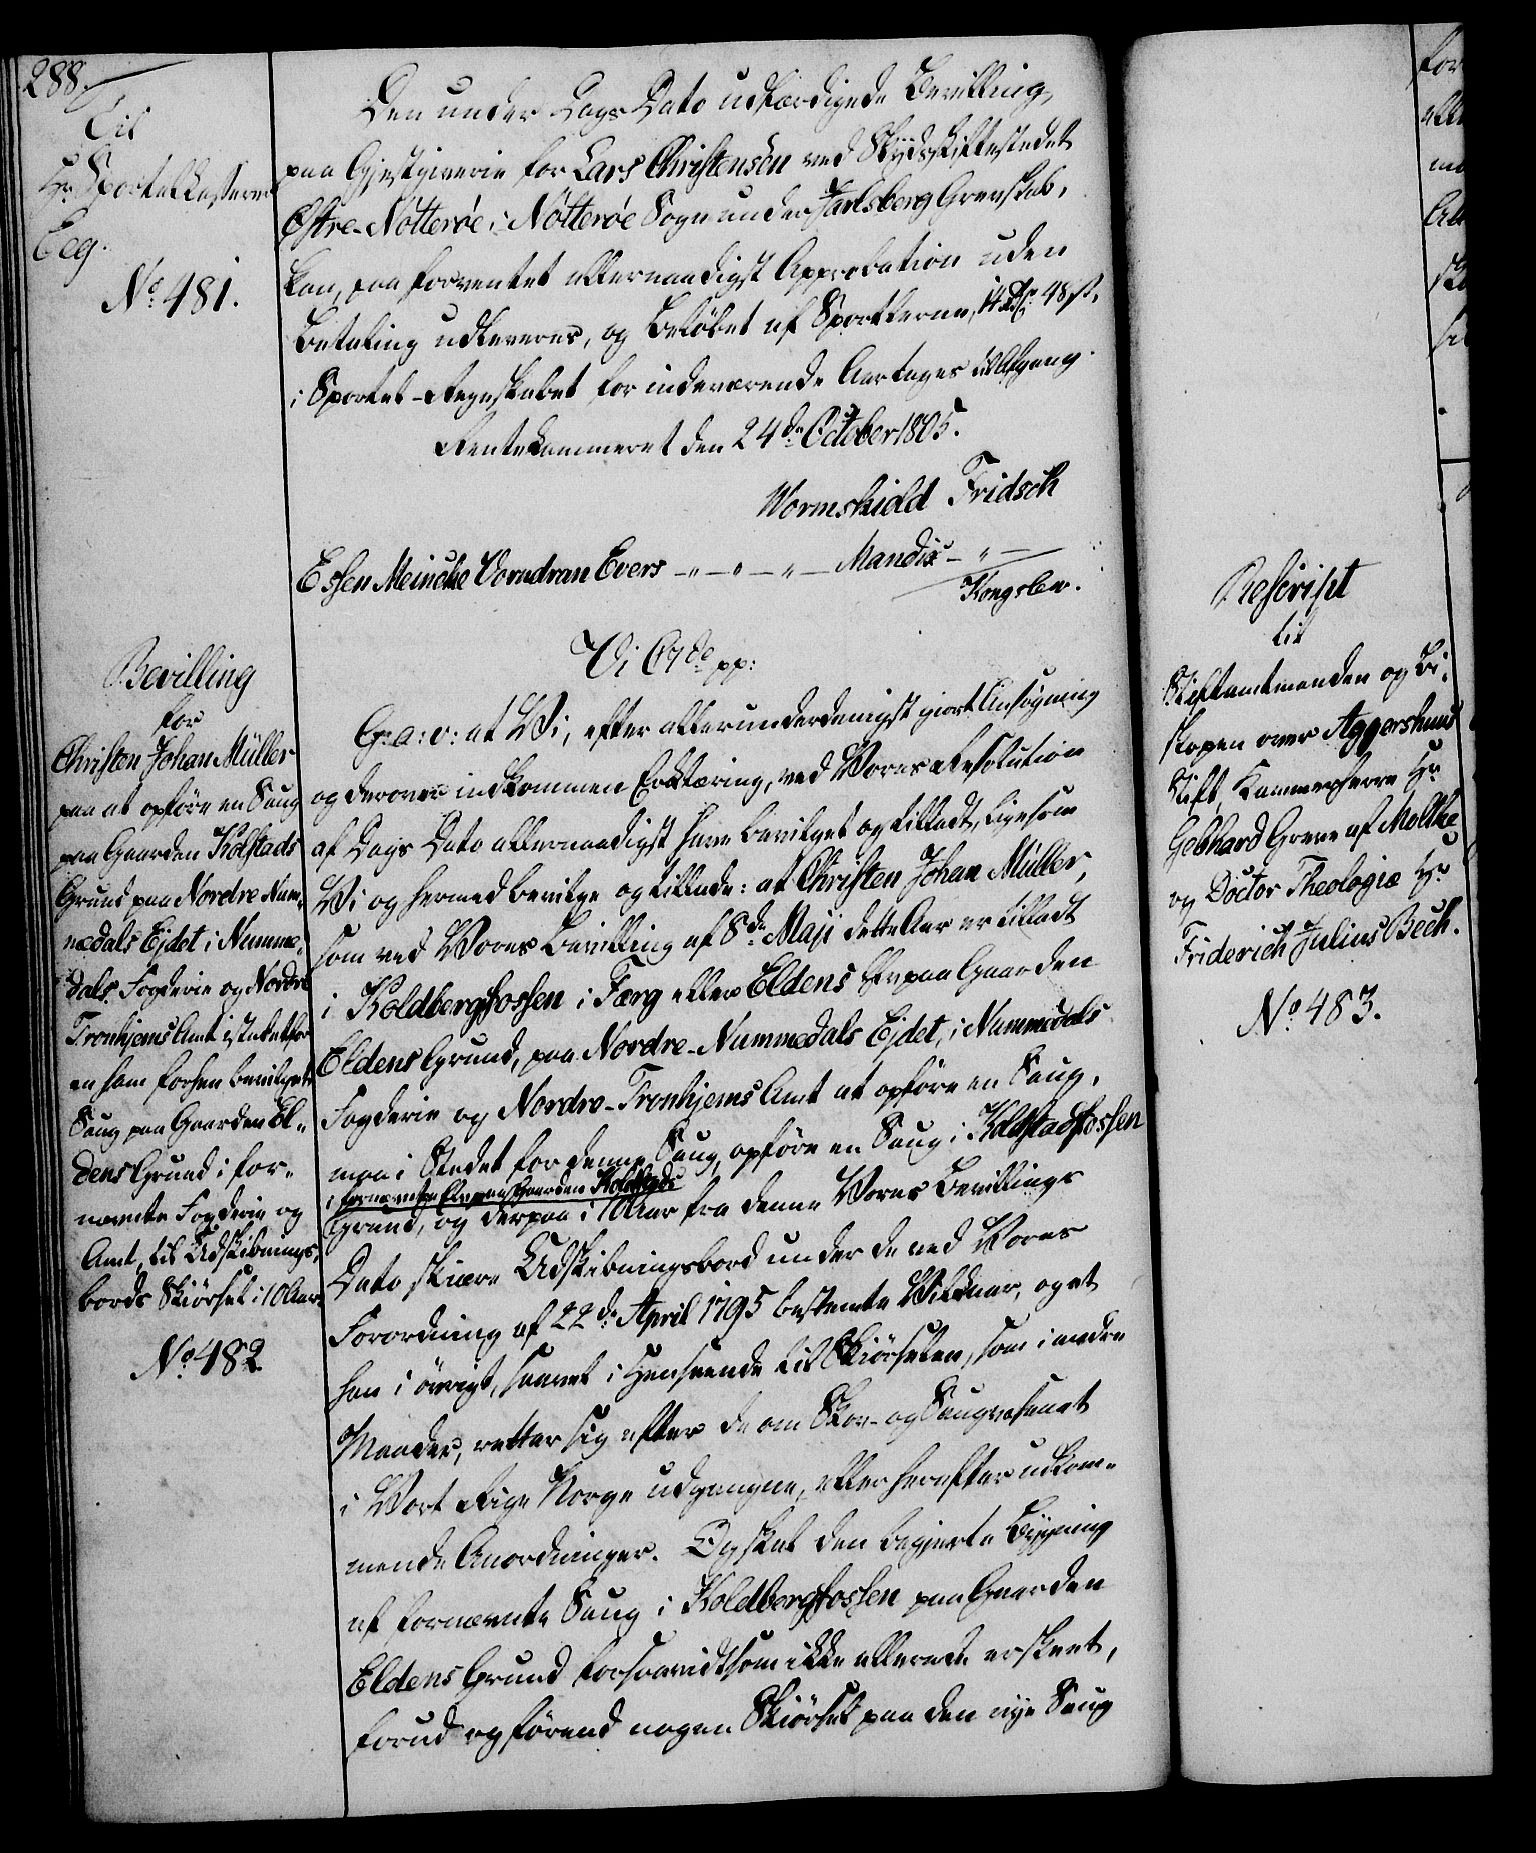 288.
Til
Hr Sportelkasserer
Eeg.
No. 481.
Den under Dags Dato udfærdigede Bevilling
paa Gjestgiverie for Lars Christensen ved Skydsskiftestedet
Østre-Nötterøe i Nötterøe Sogn under Jarlsberg Grevskab,
kan, paa forventet allernaadigst Approbation uden
Betaling udleveres, og Beløbet af Sportlerne, 14 Rdlr 48 s,
i Sportel-Regnskabet for indeværende Aar tages til Afgang.
Rentekammeret den 24de October 1805.
Wormskiold Fridsch
Essen Meincke Vorndran Evers — " — " — " — Mandix — " —
Kongslev.
Bevilling
for
Christen Johan Müller
paa at opføre en Saug
paa Gaarden Kolstads
Grund paa Nordre Num-
medals Ejdet i Numme-
dals Fogderie og Nordre
Tronhjems Amt istedetfor
en ham forhen bevilget
Saug paa Gaarden El-
dens Grund i for-
nævnte Fogderie og
Amt, til Udskibnings-
bords Skiørsel i 10 Aar.
No. 482
Vi C 7de pp:
G: a: v: at Vi, efter allerunderdanigst giort Ansøgning
og derover indkommen Erklæring, ved Vores Resolution
af Dags Dato allernaadigst have bevilget og tilladt, ligesom
Vi og hermed bevilge og tillade: at Christen Johan Müller,
som ved Vores Bevilling af 8de Maji dette Aar er tilladt
i Koldbergfossen i Færg eller Eldens Elv paa Gaarden
Eldens Grund, paa Nordre-Nummedals Ejdet, i Nummedals
Fogderie og Nordre-Tronhjems Amt at opføre en Saug,
maa i Stedet for denne Saug, opføre en Saug i Koldstadfossen
i fornævnte Elv paa Gaarden Kolstads
Grund, og derpaa i 10 Aar fra denne Vores Bevillings
Dato skiære Udskibningsbord under de ved Vores
Forordning af 22de April 1795 bestemte Vilkaar, og at
han i øvrigt, saavel i Henseende til Skiørselen, som i andre
Maader, retter sig efter de om Skov- og Saugvæsenet
i Vort Rige Norge udgangne, eller herefter udkom-
mende Anordninger. Og skal den begjerte Bygning
af fornævnte Saug i Koldbergfossen paa Gaarden
Eldens Grund forsaavidt som ikke allerede er skeet,
forud og førend nogen Skiørsel paa den nye Saug
Rescript
til
Stiftamtmanden og Bi-
skopen over Aggershuus
Stift, Kammerherre Hr
Gebhard Greve af Moltke
og Doctor Theologiæ Hr
Friderich Julius Bech.
No. 483.